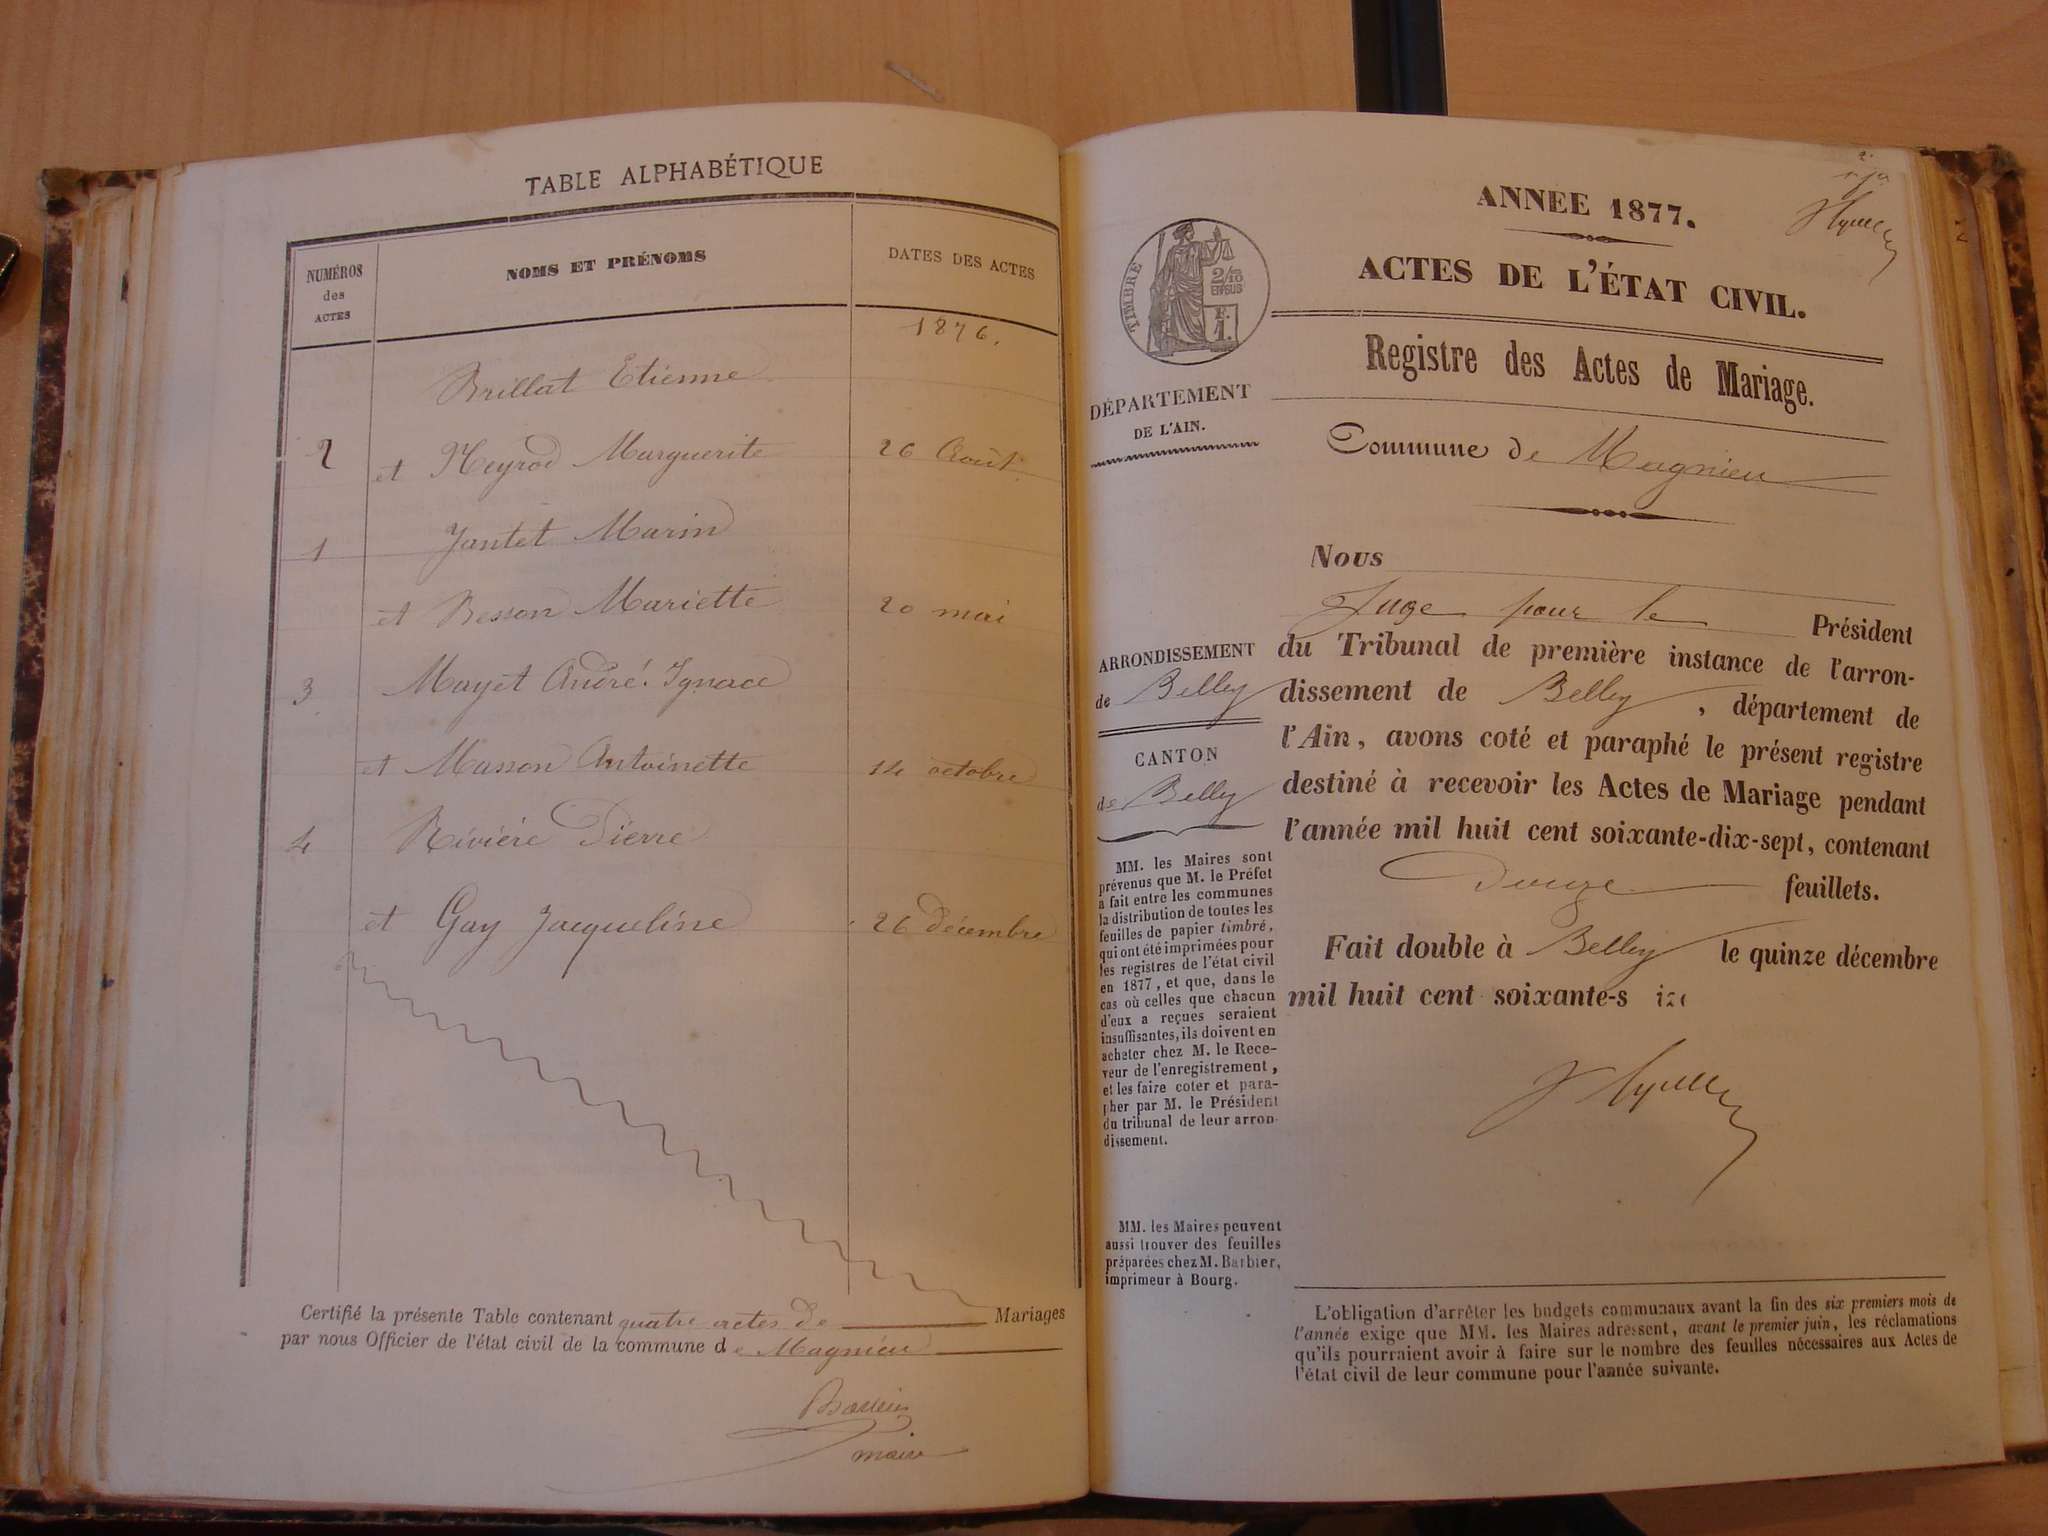 TABLE ALPHABÉTIQUE
NUMÉROS
des
ACTES
NOMS ET PRÉNOMS
DATES DES ACTES
1876.
Brillat Etienne
2 et Neyrod Marguerite 26 Août
1 Jantet Marin
et Besson Mariette 20 mai
3 Mayet André Ignace
et Masson Antoinette 14 octobre
4 Rivière Pierre
et Gay Jacqueline 26 décembre
Certifié la présente Table contenant quatre actes de Mariages
par nous Officier de l'état civil de la commune de Magnieu
maire
ANNÉE 1877.
ACTES DE L'ÉTAT CIVIL.
TIMBRE
2/10
EN SUS
F.
1.
Registre des Actes de Mariage.
DÉPARTEMENT
DE L'AIN.
Commune de Magnieu
Nous
Juge pour le Président
du Tribunal de première instance de l'arron-
dissement de Belley, département de
l'Ain, avons coté et paraphé le présent registre
destiné à recevoir les Actes de Mariage pendant
l'année mil huit cent soixante-dix-sept, contenant
Douze feuillets.
Fait double à Belley le quinze décembre
mil huit cent soixante-s ize
ARRONDISSEMENT
de Belley
CANTON
de Belley
MM. les Maires sont
prévenus que M. le Préfet
a fait entre les communes
la distribution de toutes les
feuilles de papier timbré,
qui ont été imprimées pour
les registres de l'état civil
en 1877, et que, dans le
cas où celles que chacun
d'eux a reçues seraient
insuffisantes, ils doivent en
acheter chez M. le Rece-
veur de l'enregistrement,
et les faire coter et para-
pher par M. le Président
du tribunal de leur arron-
dissement.
MM. les Maires peuvent
aussi trouver des feuilles
préparées chez M. Barbier,
imprimeur à Bourg.
L'obligation d'arrêter les budgets communaux avant la fin des six premiers mois de
l'année exige que MM. les Maires adressent, avant le premier juin, les réclamations
qu'ils pourraient avoir à faire sur le nombre des feuilles nécessaires aux Actes de
l'état civil de leur commune pour l'année suivante.